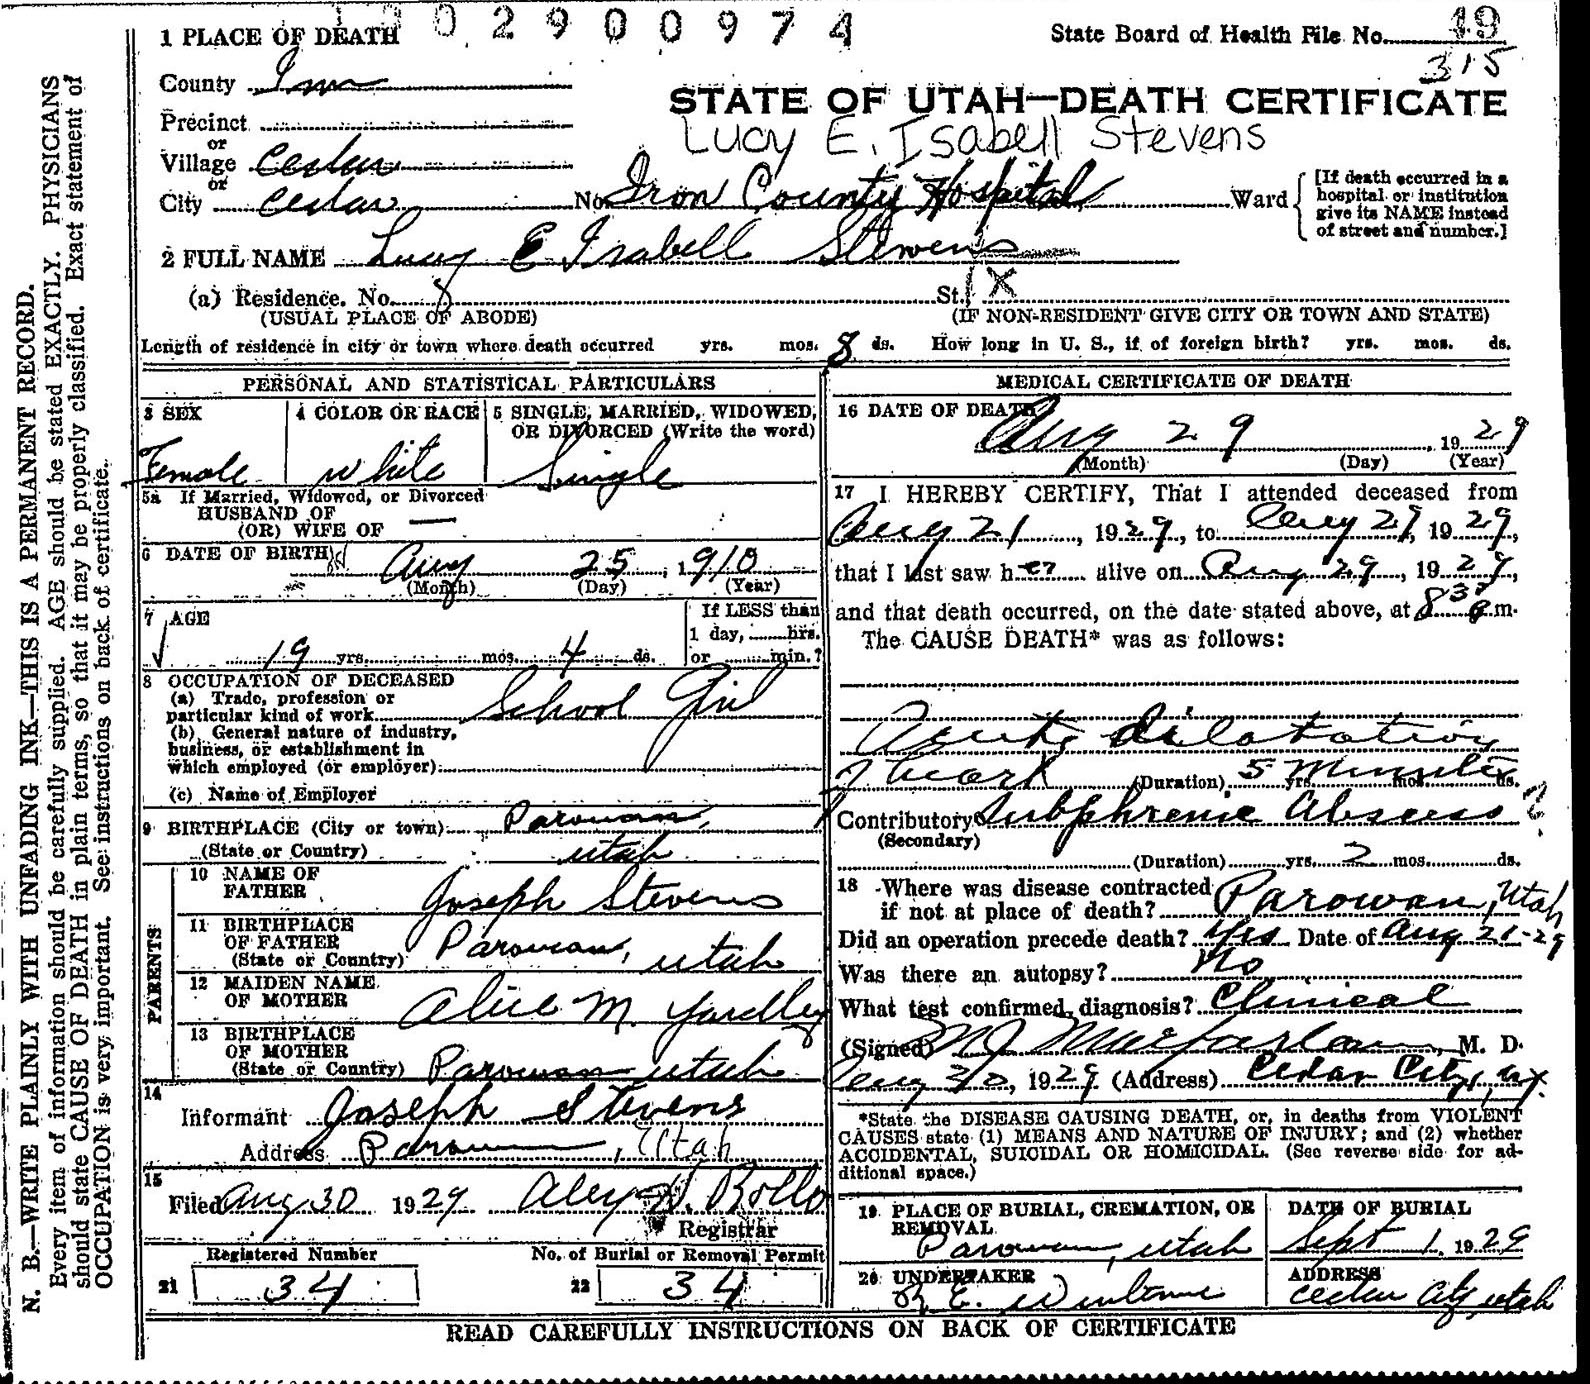 02900974
1 PLACE OF DEATH
State Board of Health File No. 19
315
County Iron
STATE OF UTAH—DEATH CERTIFICATE
Precinct
Lucy E. Isabell Stevens
or
Village Cedar
or
City Cedar No. Iron County Hospital Ward
[If death occurred in a
hospital or institution
give its NAME instead
of street and number.]
2 FULL NAME Lucy E Isabell Stevens
(a) Residence. No. St. X
(USUAL PLACE OF ABODE) (IF NON-RESIDENT GIVE CITY OR TOWN AND STATE)
Length of residence in city or town where death occurred yrs. mos. 8 ds. How long in U. S., if of foreign birth? yrs. mos. ds.
PERSONAL AND STATISTICAL PARTICULARS
3 SEX 4 COLOR OR RACE 5 SINGLE, MARRIED, WIDOWED,
OR DIVORCED (Write the word)
Female white Single
5a If Married, Widowed, or Divorced
HUSBAND OF
(OR) WIFE OF —
6 DATE OF BIRTH Aug 25, 1910
(Month) (Day) (Year)
7 AGE If LESS than
1 day, ......hrs.
19 yrs. mos. 4 ds. or ......min.?
8 OCCUPATION OF DECEASED
(a) Trade, profession or
particular kind of work School Girl
(b) General nature of industry,
business, or establishment in
which employed (or employer)
(c) Name of Employer
9 BIRTHPLACE (City or town) Parowan,
(State or Country) Utah
PARENTS
10 NAME OF
FATHER Joseph Stevens
11 BIRTHPLACE
OF FATHER
(State or Country) Parowan, Utah
12 MAIDEN NAME
OF MOTHER Alice M. Yardley
13 BIRTHPLACE
OF MOTHER
(State or Country) Parowan Utah
14
Informant Joseph Stevens
Address Parowan, Utah
15
Filed Aug 30 1929 Alex H. Rollo
Registrar
Registered Number No. of Burial or Removal Permit
21 34 22 34
MEDICAL CERTIFICATE OF DEATH
16 DATE OF DEATH
Aug 29, 1929
(Month) (Day) (Year)
17 I HEREBY CERTIFY, That I attended deceased from
Aug 21, 1929, to Aug 29, 1929,
that I last saw her alive on Aug 29, 1929,
and that death occurred, on the date stated above, at 8 m.
The CAUSE DEATH* was as follows:
Acute dilatation
of heart (Duration) 5 Minutes yrs. mos. ds.
Contributory Subphrenic Abscess ?
(Secondary)
(Duration) yrs. 2 mos. ds.
18 Where was disease contracted
if not at place of death? Parowan, Utah
Did an operation precede death? Yes Date of Aug 21-29
Was there an autopsy? No
What test confirmed diagnosis? Clinical
(Signed) M J Macfarlane, M. D.
Aug 30, 1929 (Address) Cedar City, Ut.
*State the DISEASE CAUSING DEATH, or, in deaths from VIOLENT
CAUSES state (1) MEANS AND NATURE OF INJURY; and (2) whether
ACCIDENTAL, SUICIDAL OR HOMICIDAL. (See reverse side for ad-
ditional space.)
19 PLACE OF BURIAL, CREMATION, OR
REMOVAL
Parowan, Utah
DATE OF BURIAL
Sept 1, 1929
20 UNDERTAKER
ADDRESS
Cedar City, Utah
READ CAREFULLY INSTRUCTIONS ON BACK OF CERTIFICATE
N. B.—WRITE PLAINLY WITH UNFADING INK—THIS IS A PERMANENT RECORD.
Every item of information should be carefully supplied. AGE should be stated EXACTLY. PHYSICIANS
should state CAUSE OF DEATH in plain terms, so that it may be properly classified. Exact statement of
OCCUPATION is very important. See instructions on back of certificate.